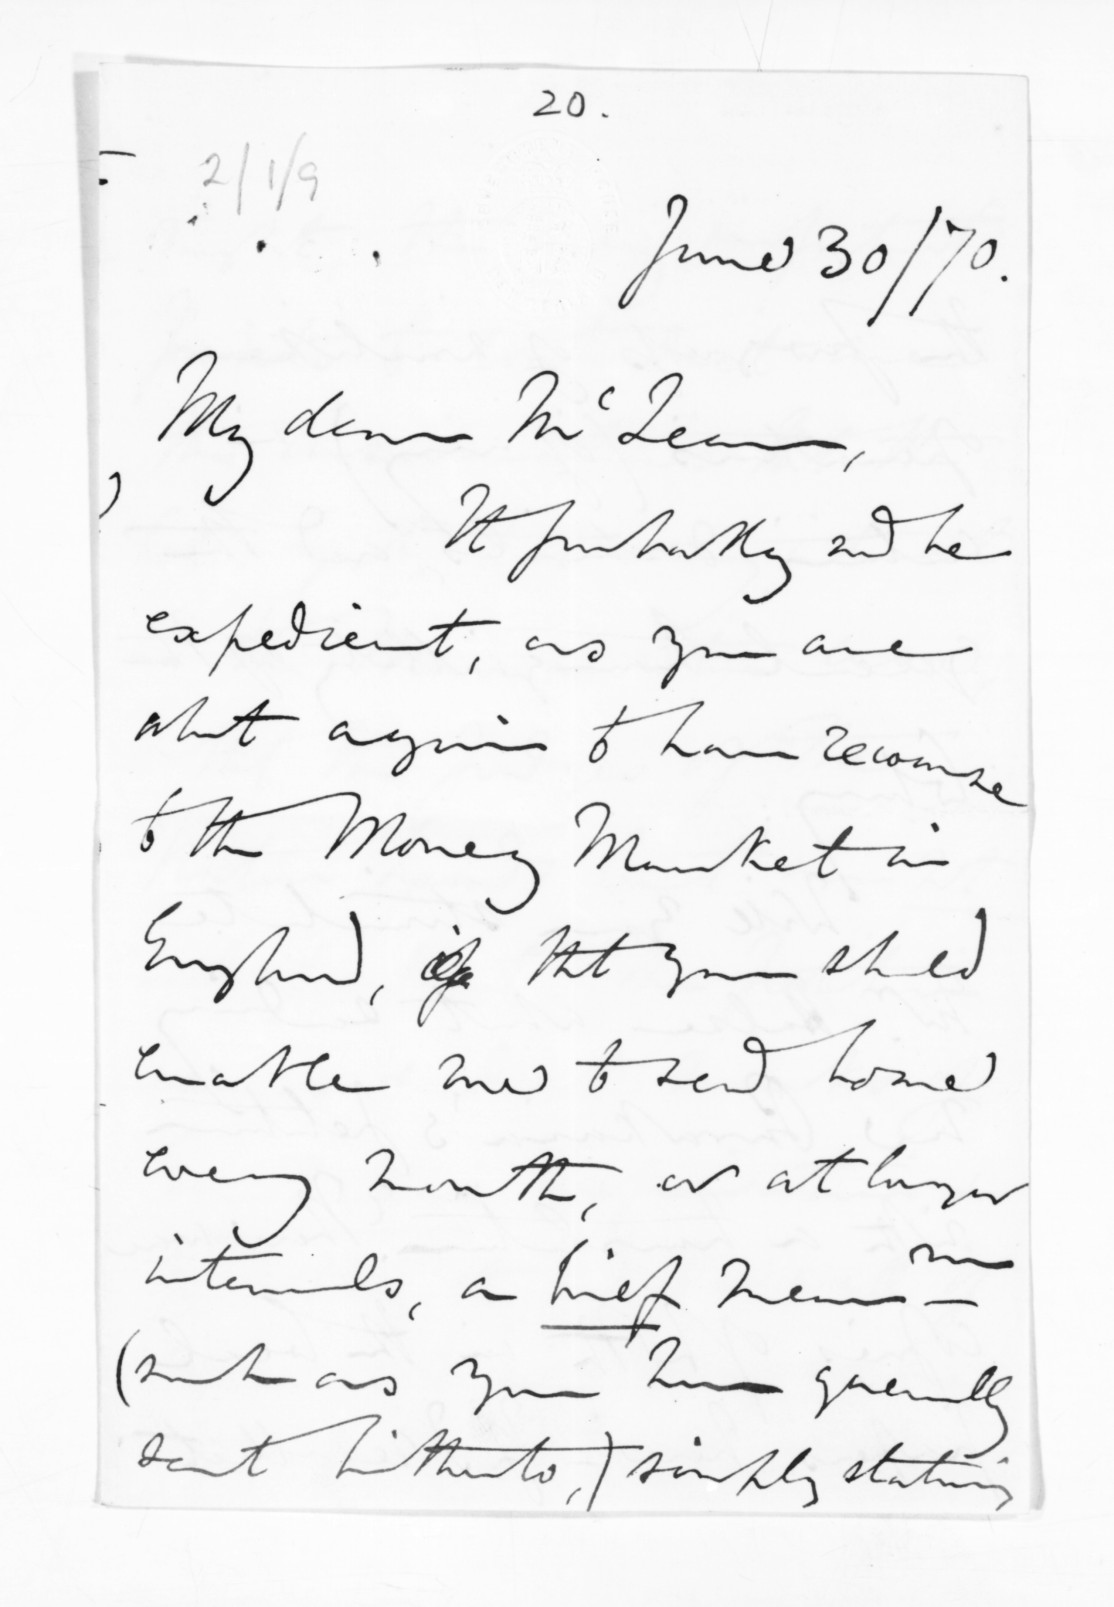 20.
2/1/9
June 30/70.
My dear McLean,
It probably wd be
expedient, as you are
abt again to have recourse
to the Money Market in
England, if tht you shld
enable me to send home
every month, or at longer
intervals, a brief Memm
(such as you have generally
sent hitherto,) simply stating